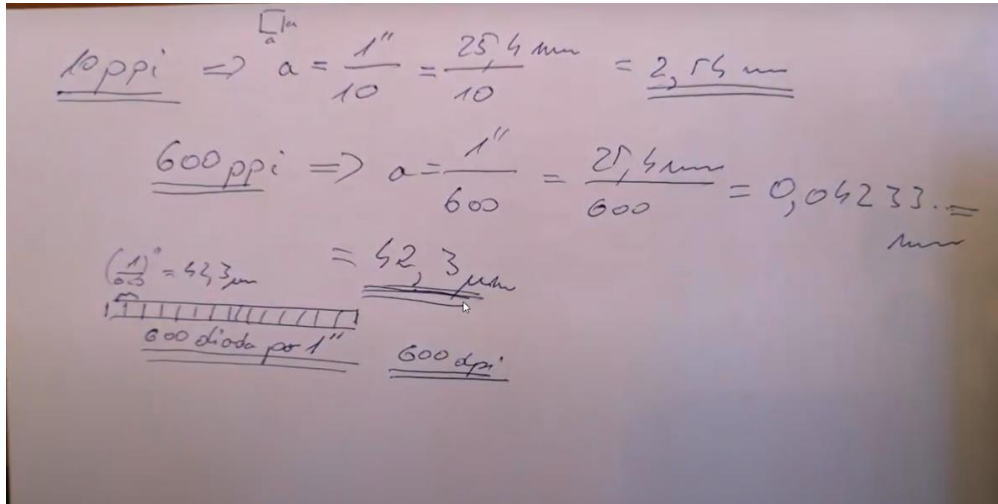 a
a
10 ppi => a = 1"/10 = 25,4 mm/10 = 2,54 mm
600 ppi => a = 1"/600 = 25,4 mm/600 = 0,04233.. =
mm
= 42,3 μm
= 42,3 μm
600 dioda po 1"
600 dpi